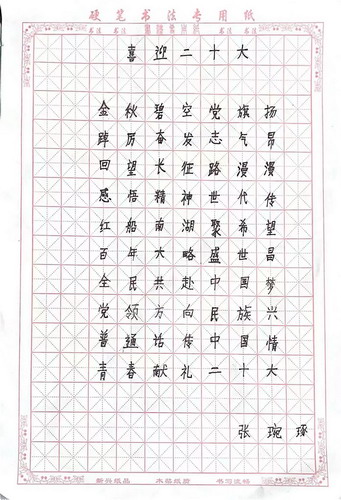 硬笔书法专用纸
喜迎二十大
金秋碧空党旗扬
踔厉奋发志气昂
回望长征路漫漫
感悟精神世代传
红船南湖聚希望
百年大略盛世昌
全民共赴中国梦
党领方向民族兴
普通话传中国情
青春献礼二十大
张琬琢